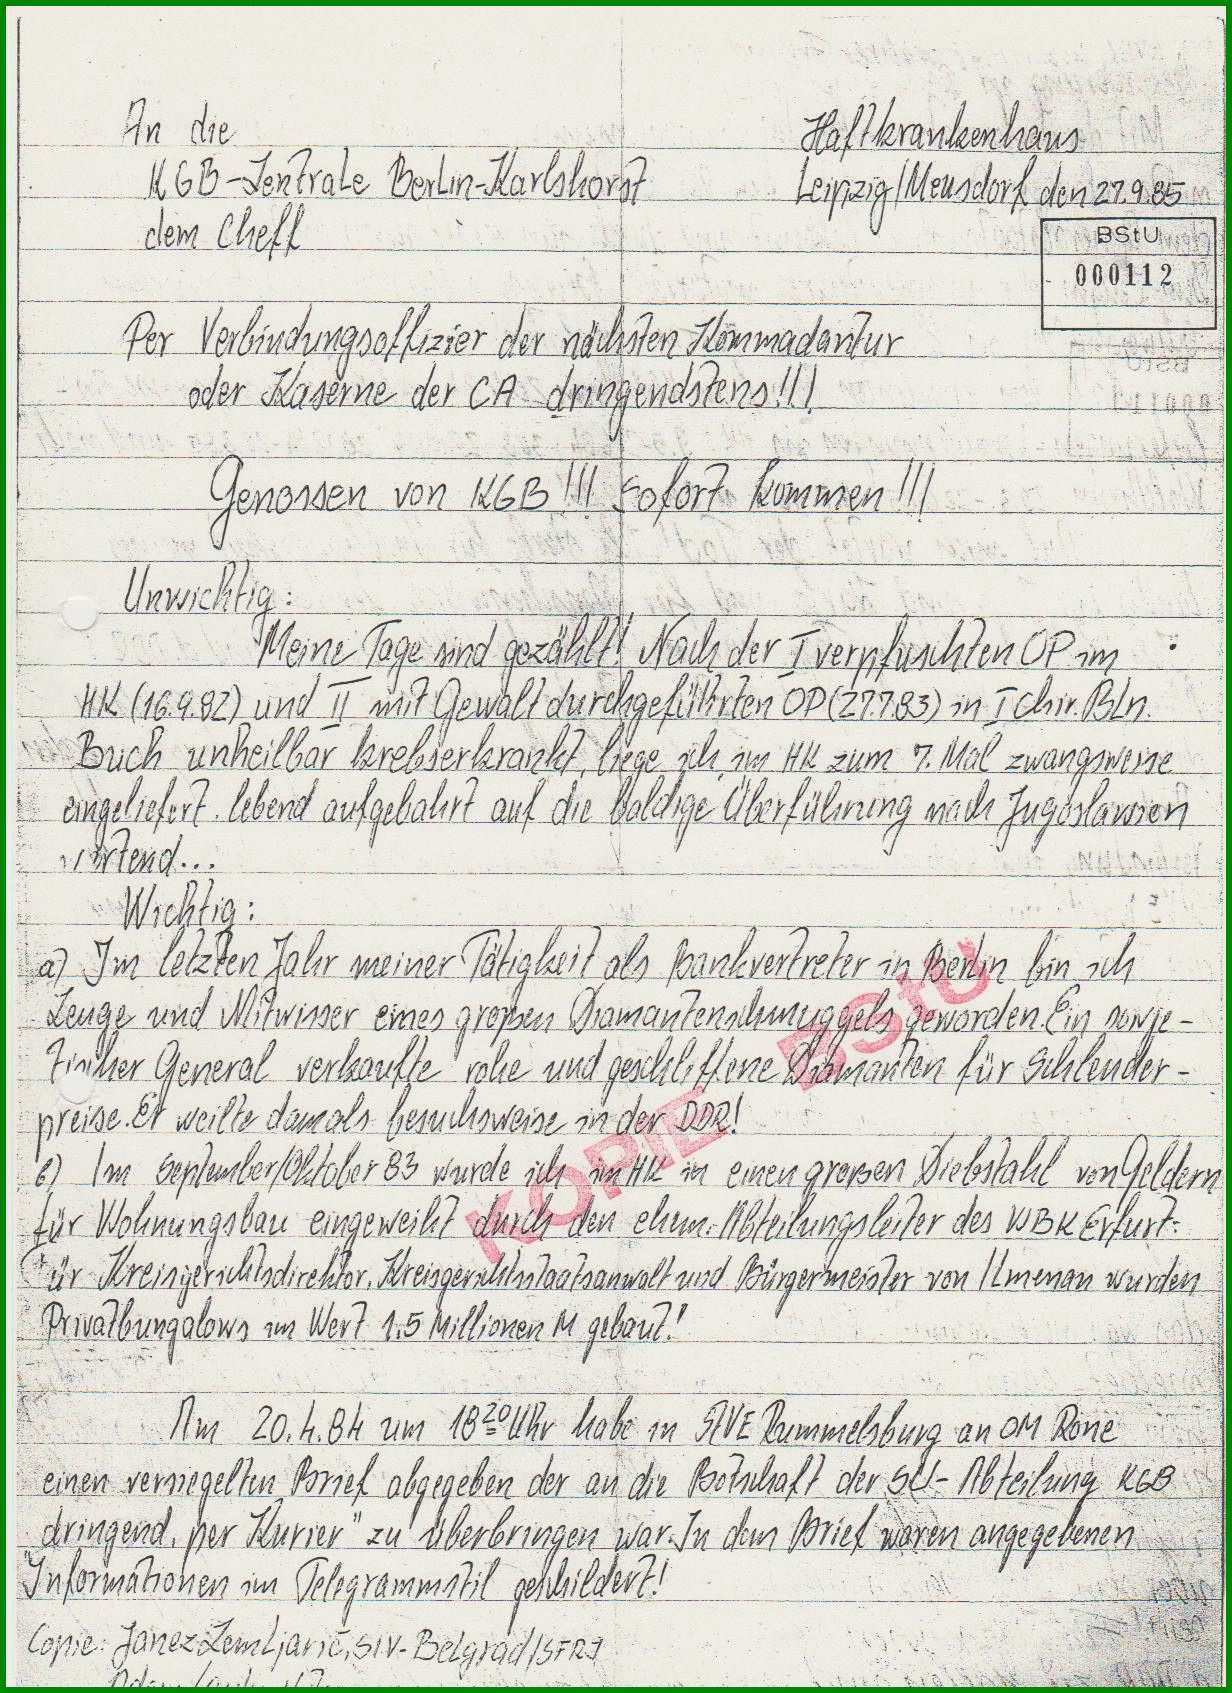 An die
Haftkrankenhaus
KGB-Zentrale Berlin-Karlshorst
Leipzig/Meusdorf den 27.9.85
dem Cheff
BStU
000112
Per Verbindungsoffizier der nächsten Kommadantur
oder Kaserne der CA dringendstens!!!
Genossen von KGB!!! Sofort kommen!!!
Unwichtig:
Meine Tage sind gezählt! Nach der I verpfuschten OP im
HK (16.9.82) und II mit Gewalt durchgeführten OP (27.7.83) in I Chir. Bln.
Buch unheilbar krebserkrankt, liege ich im HK zum 7. Mal zwangsweise
eingeliefert. lebend aufgebahrt auf die baldige Überführung nach Jugoslawien
wartend...
Wichtig:
a) Im letzten Jahr meiner Tätigkeit als Bankvertreter in Berlin bin ich
Zeuge und Mitwisser eines großen Diamantenschmuggels geworden. Ein sowje-
tischer General verkaufte rohe und geschliffene Diamanten für Schleuder-
preise. Er weilte damals besuchsweise in der DDR!
b) Im September/Oktober 83 wurde ich im HK in einen großen Diebstahl von Geldern
für Wohnungsbau eingeweiht durch den ehem. Abteilungsleiter des WBK Erfurt:
für Kreisgerichtsdirektor, Kreisgerichtsstaatsanwalt und Bürgermeister von Ilmenau wurden
Privatbungalows im Wert 1.5 Millionen M gebaut!
Am 20.4.84 um 18 20 Uhr habe in StVE Rummelsburg an OM Rone
einen versiegelten Brief abgegeben der an die Botschaft der SU- Abteilung KGB
dringend „per Kurier" zu überbringen war. In dem Brief waren angegebenen
Informationen im Telegrammstil geschildert!
Copie: Janez Zemljarič, SIV-Belgrad/SFRJ
KOPIE BStU